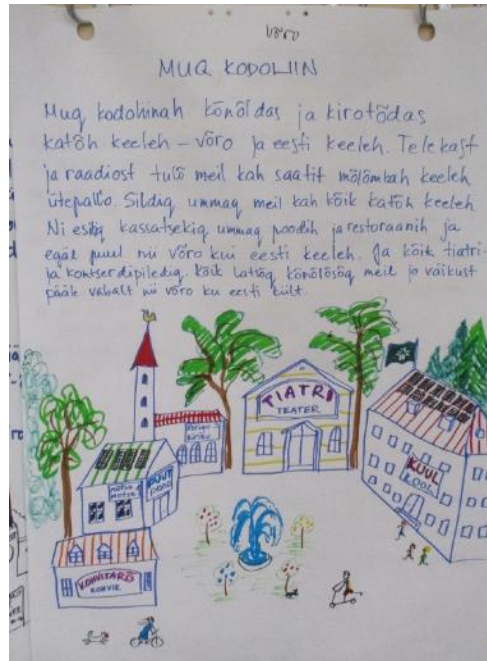 võro
MUQ KODOLIIN
Muq kodoliinah kõnõldas ja kirotõdas
katõh keeleh – võro ja eesti keeleh. Telekast
ja raadiost tulõ meil kah saatit mõlõmbah keeleh
ütepallo. Sildiq ummaq meil kah kõik katõh keeleh.
Ni esiq kassatsekiq ummaq poodih ja restoraanih ja
egäl puul nii võro kui eesti keeleh. Ja kõik tiatri-
ja kontserdipilediq. Kõik latsõq kõnõlõsõq meil jo väikust
pääle vabalt nii võro ku eesti kiilt.
TIATRI
TEATER
KUUL
KOOL
PUUT
POOD
KOHVITARÕ
KOHVIK